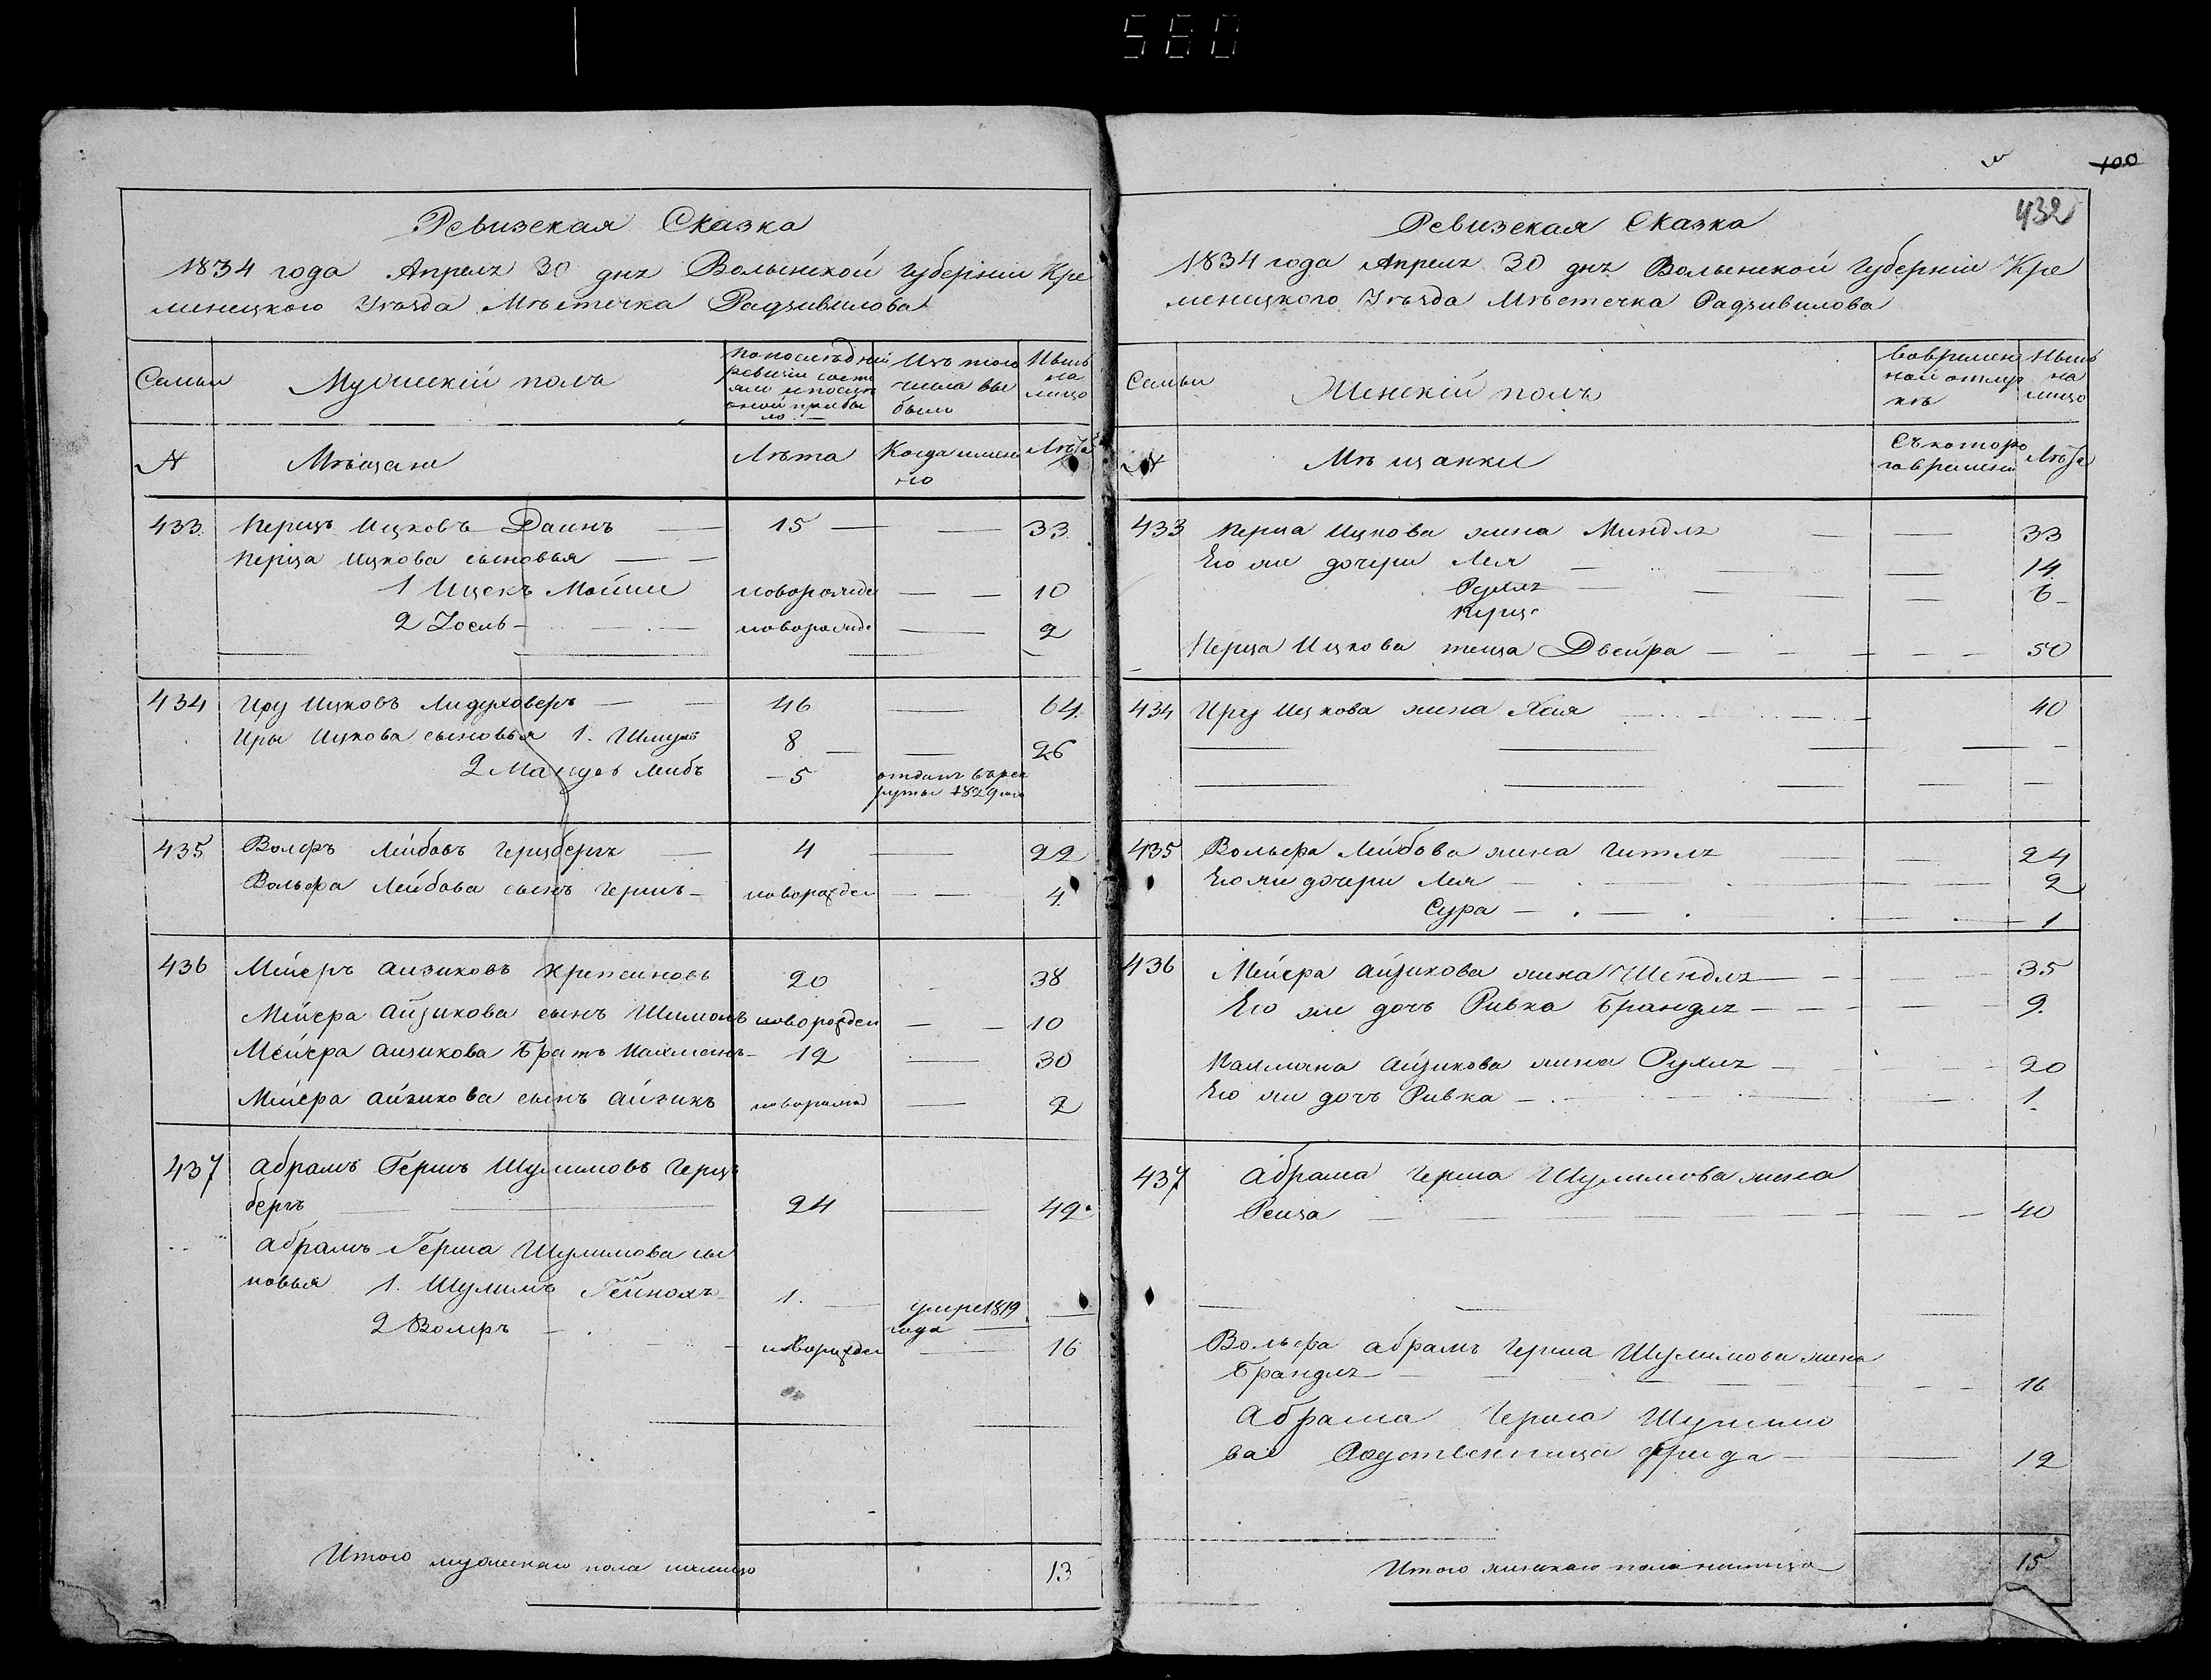 580
Ревизская Сказка
1834 года Апреля 30 дня Волынской Губернiи Кре
менецкого Уѣзда Мѣстечка Радзивилова
Семьи
Мужескiй полъ
По послѣдней
ревизiи состо
яло и послѣ
оной прибы
ло
Изъ того
числа вы
было
Нынѣ
на
лицо
№
Мѣщане
Лѣта
Когда имен
но
Лѣта
433 Перецъ Ицковъ Даинъ — 15 — — 33
Перца Ицкова сыновья — —
1 Ицекъ Мойше новорожде — — 10
2 Iосль — новорожде — 2
434 Иру Ицковъ Лидуховеръ — 46 — 64
Иры Ицкова сыновья 1. Шмуль 8 — — 26
2 Лейбъ 5 отданъ въ рек
руты 1829 го
435 Волфъ Лейбовъ Герцбергъ — 4 — 22
Вольфа Лейбова сынъ Гершъ — новорожден — — 4
436 Мейеръ Айзиковъ 20 38
Мейера Айзикова сынъ Шимонъ новорожден — — 10
Мейера Айзикова Братъ Калманъ — 12 — 30
Мейера Айзикова сынъ Айзикъ новорожд — 2
437 Абрамъ Гершъ Шулимовъ Герцъ
бергъ 24 — 42
Абрамъ Герша Шулимова сы
новья 1. Шулимъ Гейнохъ 1. — умре 1819
года —
2 Волфъ — новорожден — 16
Итого мужескаго пола налицо 13
100
432
Ревизская Сказка
1834 года Апреля 30 дня Волынской Губернiи Кре
менецкого Уѣзда Мѣстечка Радзивилова
Семьи
Женскiй полъ
Во времен
ной отлуч
кѣ
Нынѣ
на
лицо
№
Мѣщанки
Съ которо
го времени
Лѣта
433 Перца Ицкова жена Миндля — — 33
Его же дочери Лея — — 14
Рухля — — — 6
Перца Ицкова теща Двейра — — — — — 50
434 Иру Ицкова жена Хая 40
435 Вольфа Лейбова жена Гитля — — 24
Его же дочери Лея — — — 2
Сура — — — 1
436 Мейера Айзикова жена Шендля — — 35
Его же дочь Ривка Брандля — — — 9.
Калмана Айзикова жена Рухля — 20
Его же дочь Ривка — — 1.
437 Абрама Герша Шулимова жена
Рейза — — — 40
Вольфа Абрамъ Герша Шулимова жена
Брандля — — — 16
Абрама Герша Шулимо
ва Родственница Фрида — 12
Итого женскаго пола налицо 15